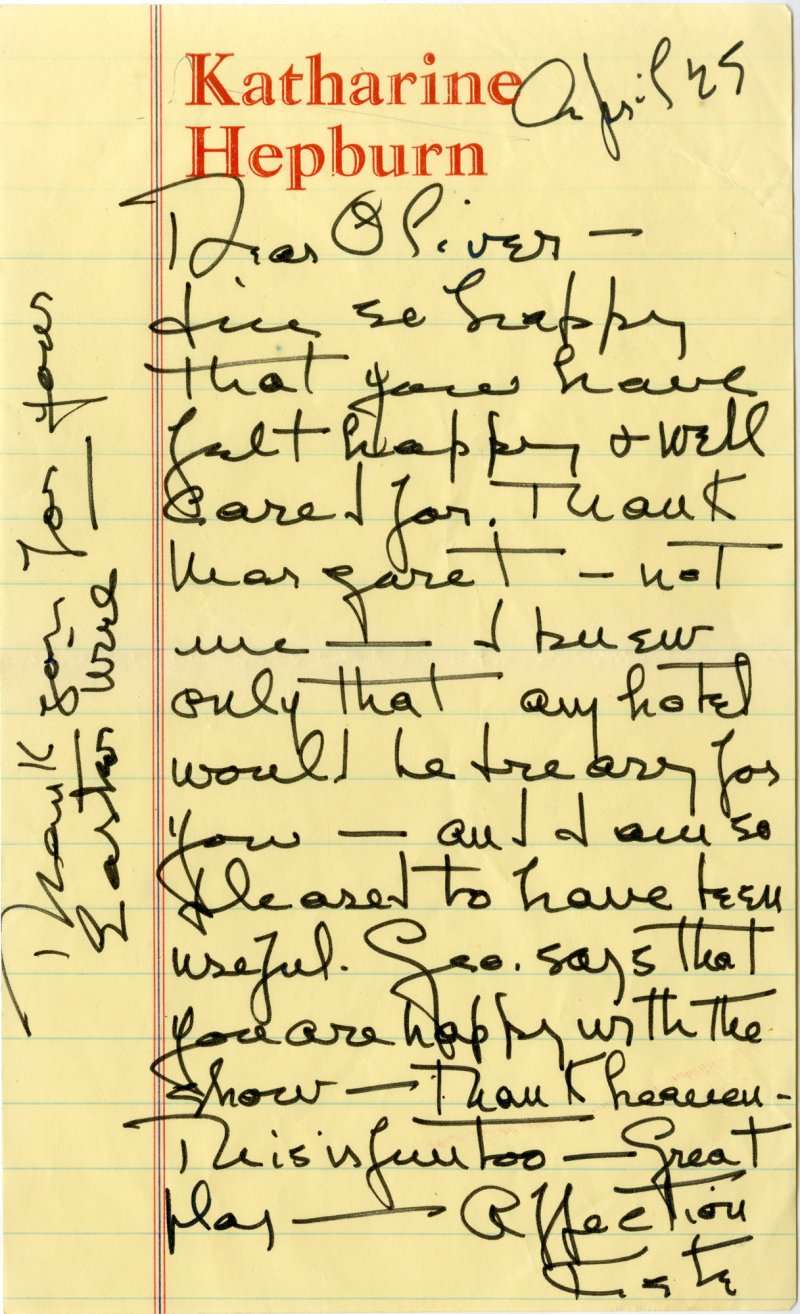 Katharine
Hepburn
April 25
Dear Oliver —
I'm so happy
that you have
felt happy & well
cared for. Thank
Margaret — not
me — I knew
only that any hotel
would be dreary for
you — and I am so
pleased to have been
useful. Geo. says that
you are happy with the
show — Thank heaven –
This is fun too — Great
play — Affection
Kate
Thank you for your
Easter wire —